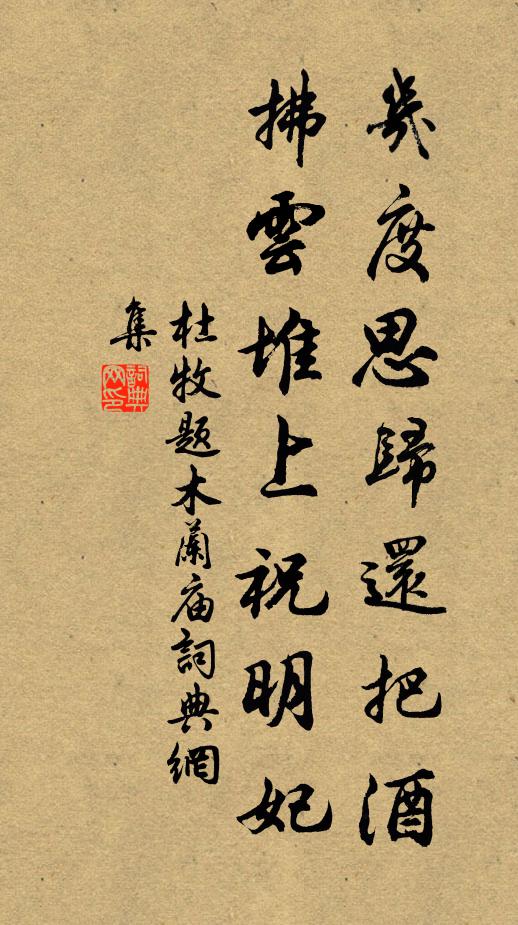 幾度思歸還把酒
拂雲堆上祝明妃
杜牧題木蘭庙詞典網
集
詞典
网印